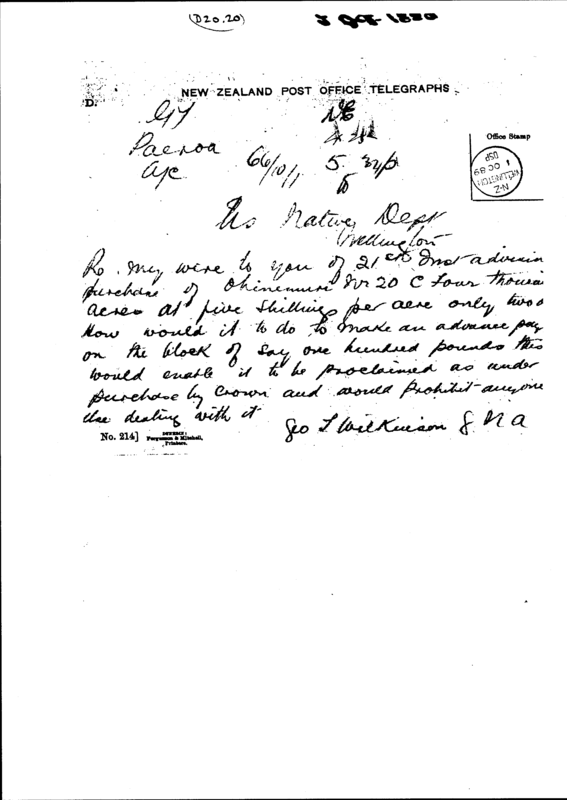 (D20.20)
NEW ZEALAND POST OFFICE TELEGRAPHS.
D.
Office Stamp
Paeroa
N-Z
WELLINGTON
1 OC 89
Us Native Dept
Wellington
Re my wire to you of 21st Inst advisin
purchase of Ohinemuri No 20 C Four thousan
acres at five Shillings per acre only two o
How would it to do to make an advance pay
on the block of say one hundred pounds this
would enable it to be proclaimed as under
purchase by Crown and would prohibit anyone
else dealing with it
Geo T Wilkinson G N A
No. 214]
Fergusson & Mitchell,
Printers.